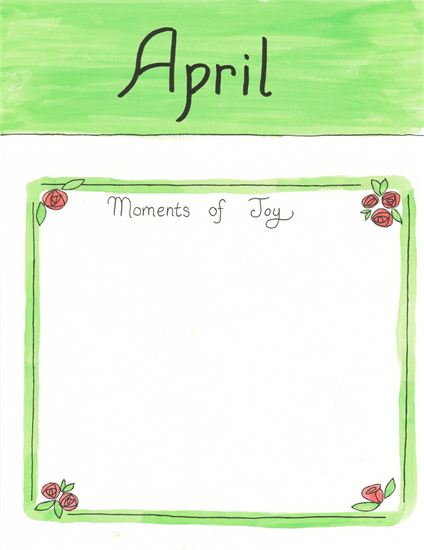 April
Moments of Joy